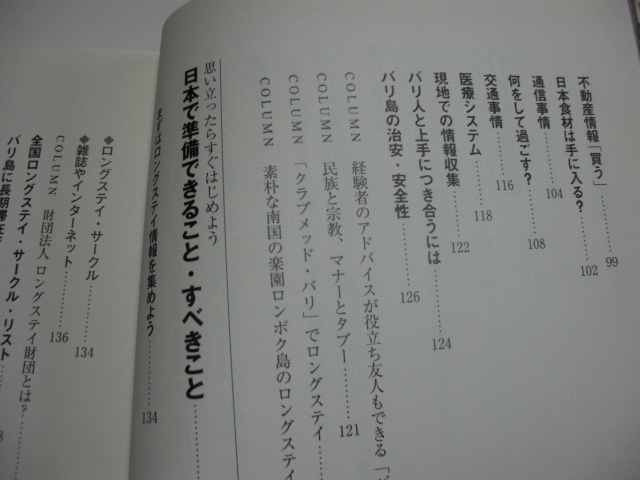 不動産情報「買う」……99
日本食材は手に入る?……102
通信事情……104
何をして過ごす?……108
交通事情……116
医療システム……118
現地での情報収集……122
バリ人と上手につき合うには……124
バリ島の治安・安全性……126
COLUMN 経験者のアドバイスが役立ち友人もできる「
COLUMN 民族と宗教、マナーとタブー……121
COLUMN 「クラブメッド・バリ」でロングステイ……
COLUMN 素朴な南国の楽園ロンボク島のロングステイ
思い立ったらすぐはじめよう
日本で準備できること・すべきこと……
まずはロングステイ情報を集めよう……134
◆ロングステイ・サークル
◆雑誌やインターネット……134
COLUMN 財団法人 ロングステイ財団とは?……136
全国ロングステイ・サークル・リスト……
バリ島に長期滞在